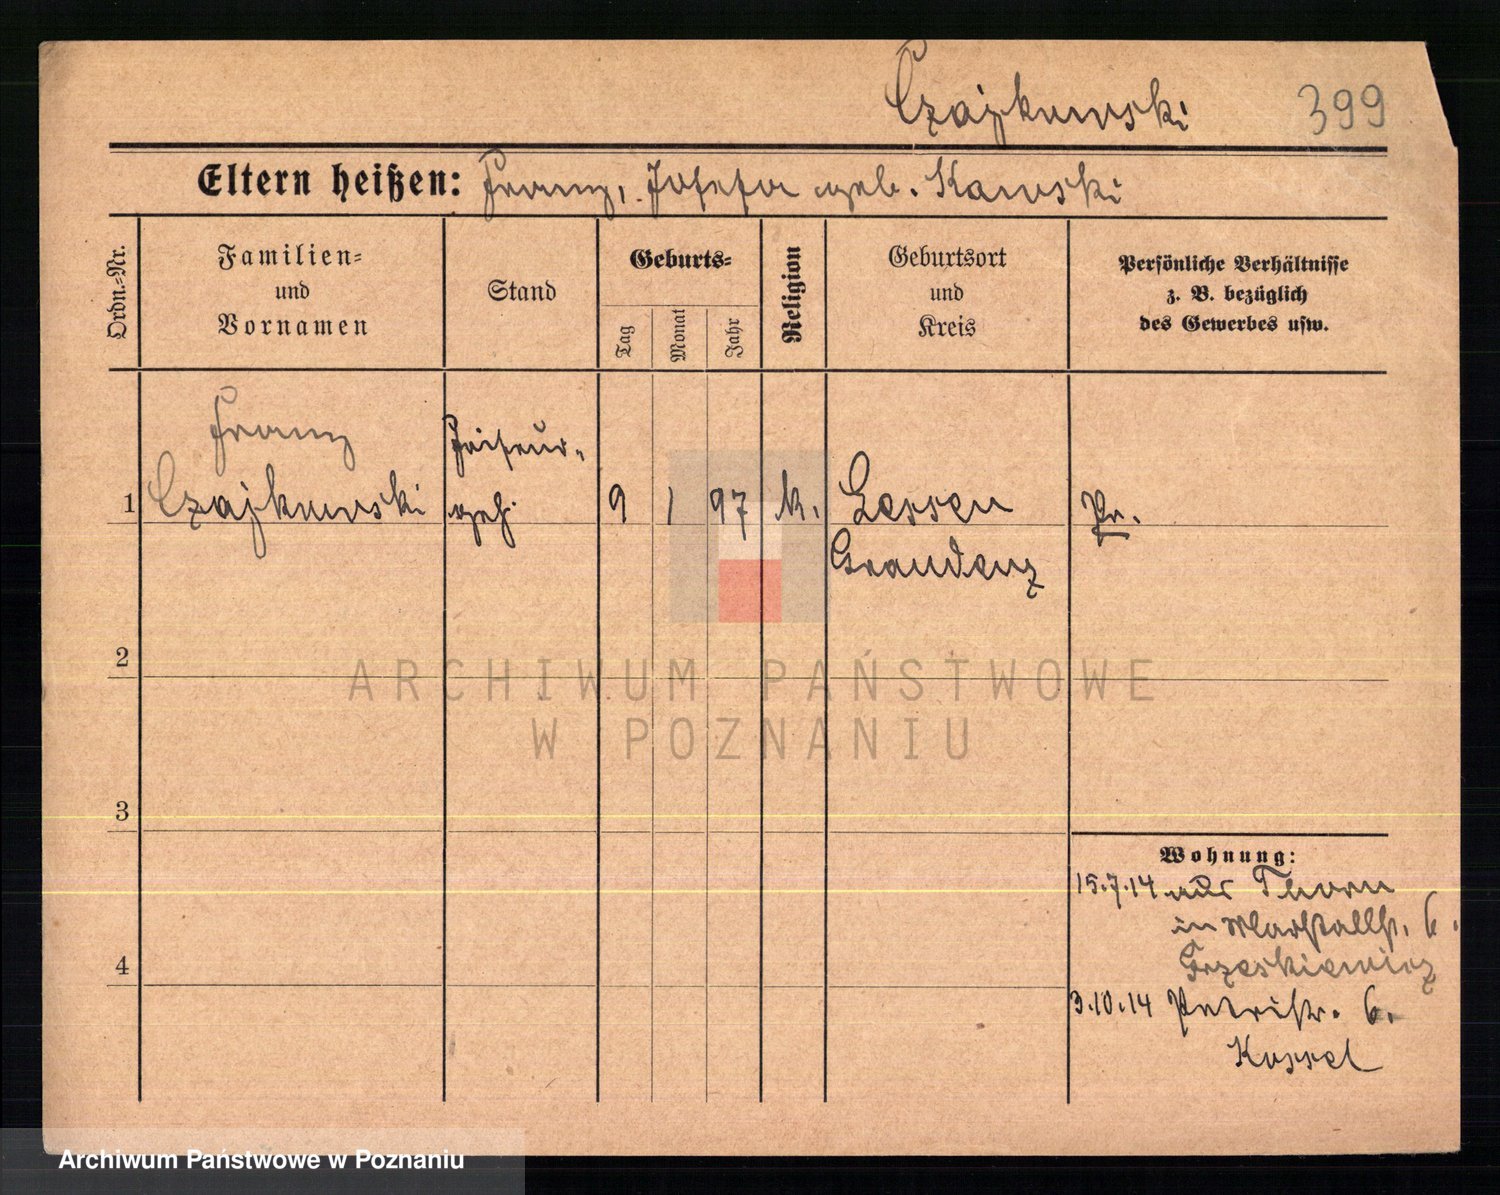 Czajkowski 399
Eltern heißen: Franz, Josefa geb. Kawski
Ordn.-Nr.
Familien-
und
Vornamen
Stand
Geburts-
Tag
Monat
Jahr
Religion
Geburtsort
und
Kreis
Persönliche Verhältnisse
z. B. bezüglich
des Gewerbes usw.
Franz Friseur-
1 Czajkowski geh. 9 1 97 k. Lessen Pr.
Graudenz
2
ARCHIWUM PAŃSTWOWE
W POZNANIU
3
Wohnung:
15.7.14 aus Thorn
in Marstallst. 6.
Grzeskiewicz
4
3.10.14 Petristr. 6.
Kossel
Archiwum Państwowe w Poznaniu